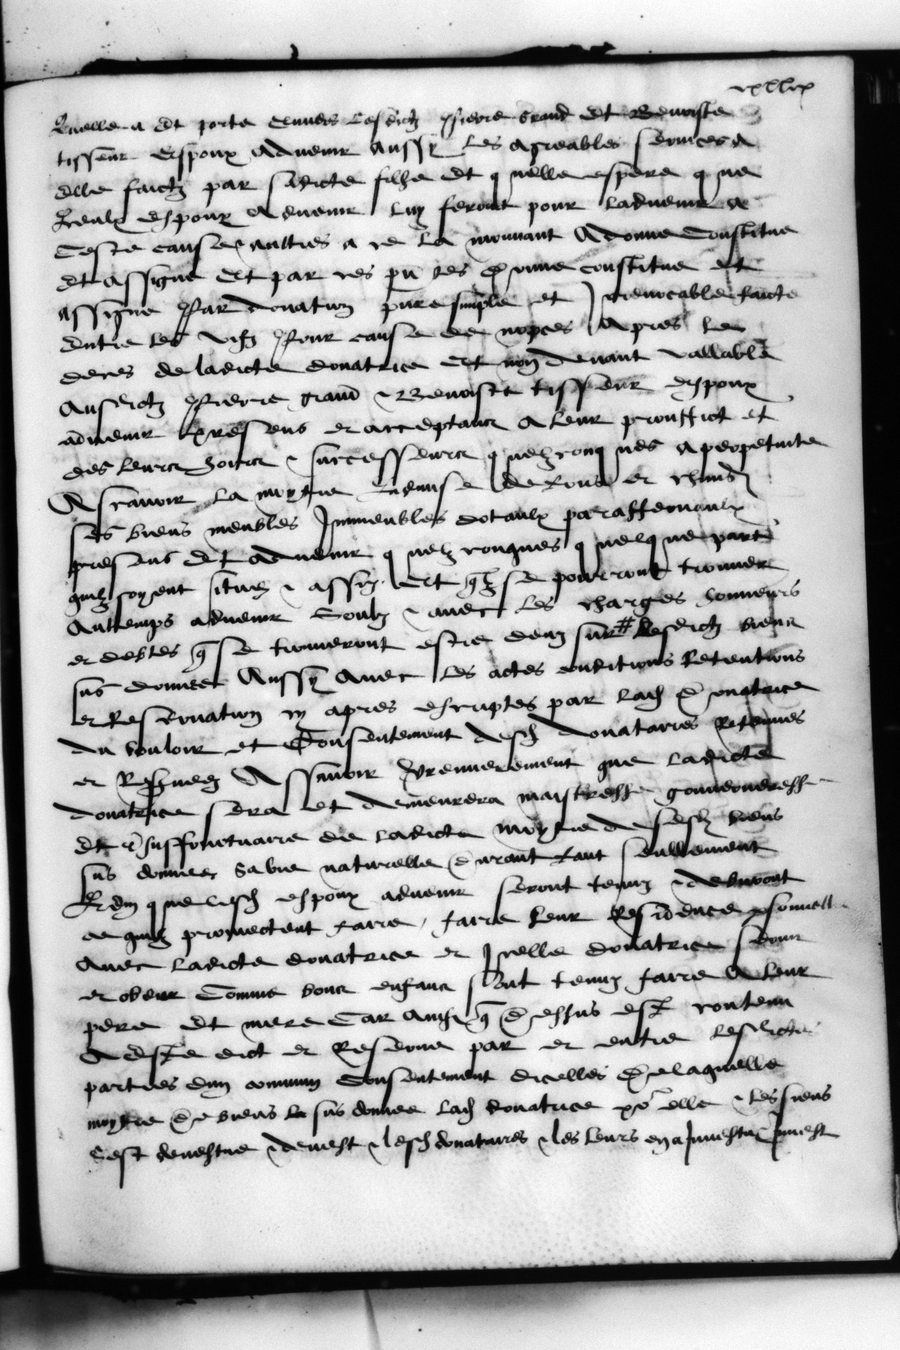 Quelle a et porte envers lesdictz Pierre Grand et Benoiste
tisseur espoux advenir Aussy les agreables services a
elle faictz par sadicte filhe et quelle espere que
Iceulx espoux advenir luy feront pour ladvenir a
Ceste cause aultres a ce la mouvant A donne Constitue
et assigne Et par ces pntes donne constitue et
Assigne Par donation pure simple et Irrevocable faicte
entre les vifz Pour cause de nopces Apres le
deces de ladicte donatrice Et non devant vallable
Ausdictz Pierre Grand Benoiste tisseur espoux
advenir Presens et acceptans A leur prouffict et
des leurs hoirs successeurs quelzconques A perpetuite
Ascavoir la moytie de tous et chascuns
ses biens meubles Immeubles dotaulx paraffernaulx
presens et advenir quelzconques quelque part
quilz soyent situez assis Et qz se pourront trouver
Au temps advenir Soubz avec les charges honneurs
et debtes q se trouveront estre deuz sur # lesdictz biens
sus donnes Aussy Avec les actes conditions Retentions
et Reservation cy apres escriptes par ladt donatrice
du vouloir et Consentement desdt donataires Retenues
et Reservees Assavoir Premierement que ladicte
donatrice sera et demeurera maistresse gouverneresse
et usuffructuaire de ladicte moytie desdt biens
sus donnes Sa vie naturelle durant tant seullement
Item que lesdt espoux advenir seront tenuz debvront
ce quilz promectent faire, faire leur Residence personnelle
Avec ladicte donatrice et Icelle donatrice servir
et obeir Comme bons enfans sont tenuz faire A leur
pere et mere Car Ainsi q dessus est contenu
A este dict et Reserve par et entre lesdictes
parties dun commun Consentement dicelles De laquelle
moytie de biens la sus donnee ladt donatrice po elle les siens
Sest devestue devest lesdt donataires les leurs en a Investu Investi